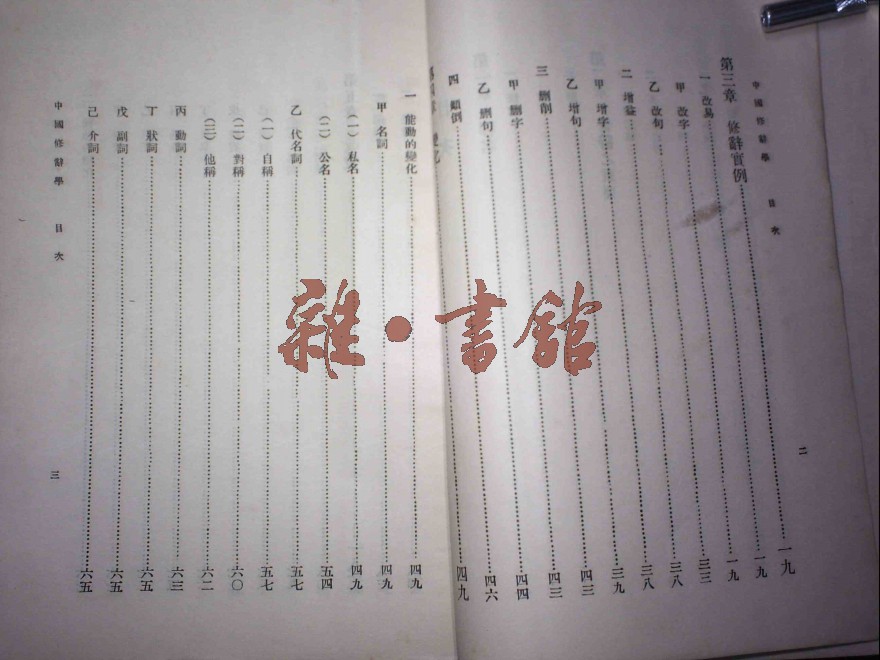 中國修辭學 目次 二
第三章 修辭實例……一九
一 改易……一九
甲 改字……一九
乙 改句……三三
二 增益……三八
甲 增字……三八
乙 增句……三九
三 刪削……四三
甲 刪字……四三
乙 刪句……四四
四 顛倒……四六
四九
一 能動的變化……四九
甲 名詞……四九
(一) 私名……四九
(二) 公名……五四
乙 代名詞……五七
(一) 自稱……五七
(二) 對稱……六〇
(三) 他稱……六二
丙 動詞……六三
丁 狀詞……六五
戊 副詞……六五
己 介詞……六五
中國修辭學 目次 三
雜•書館